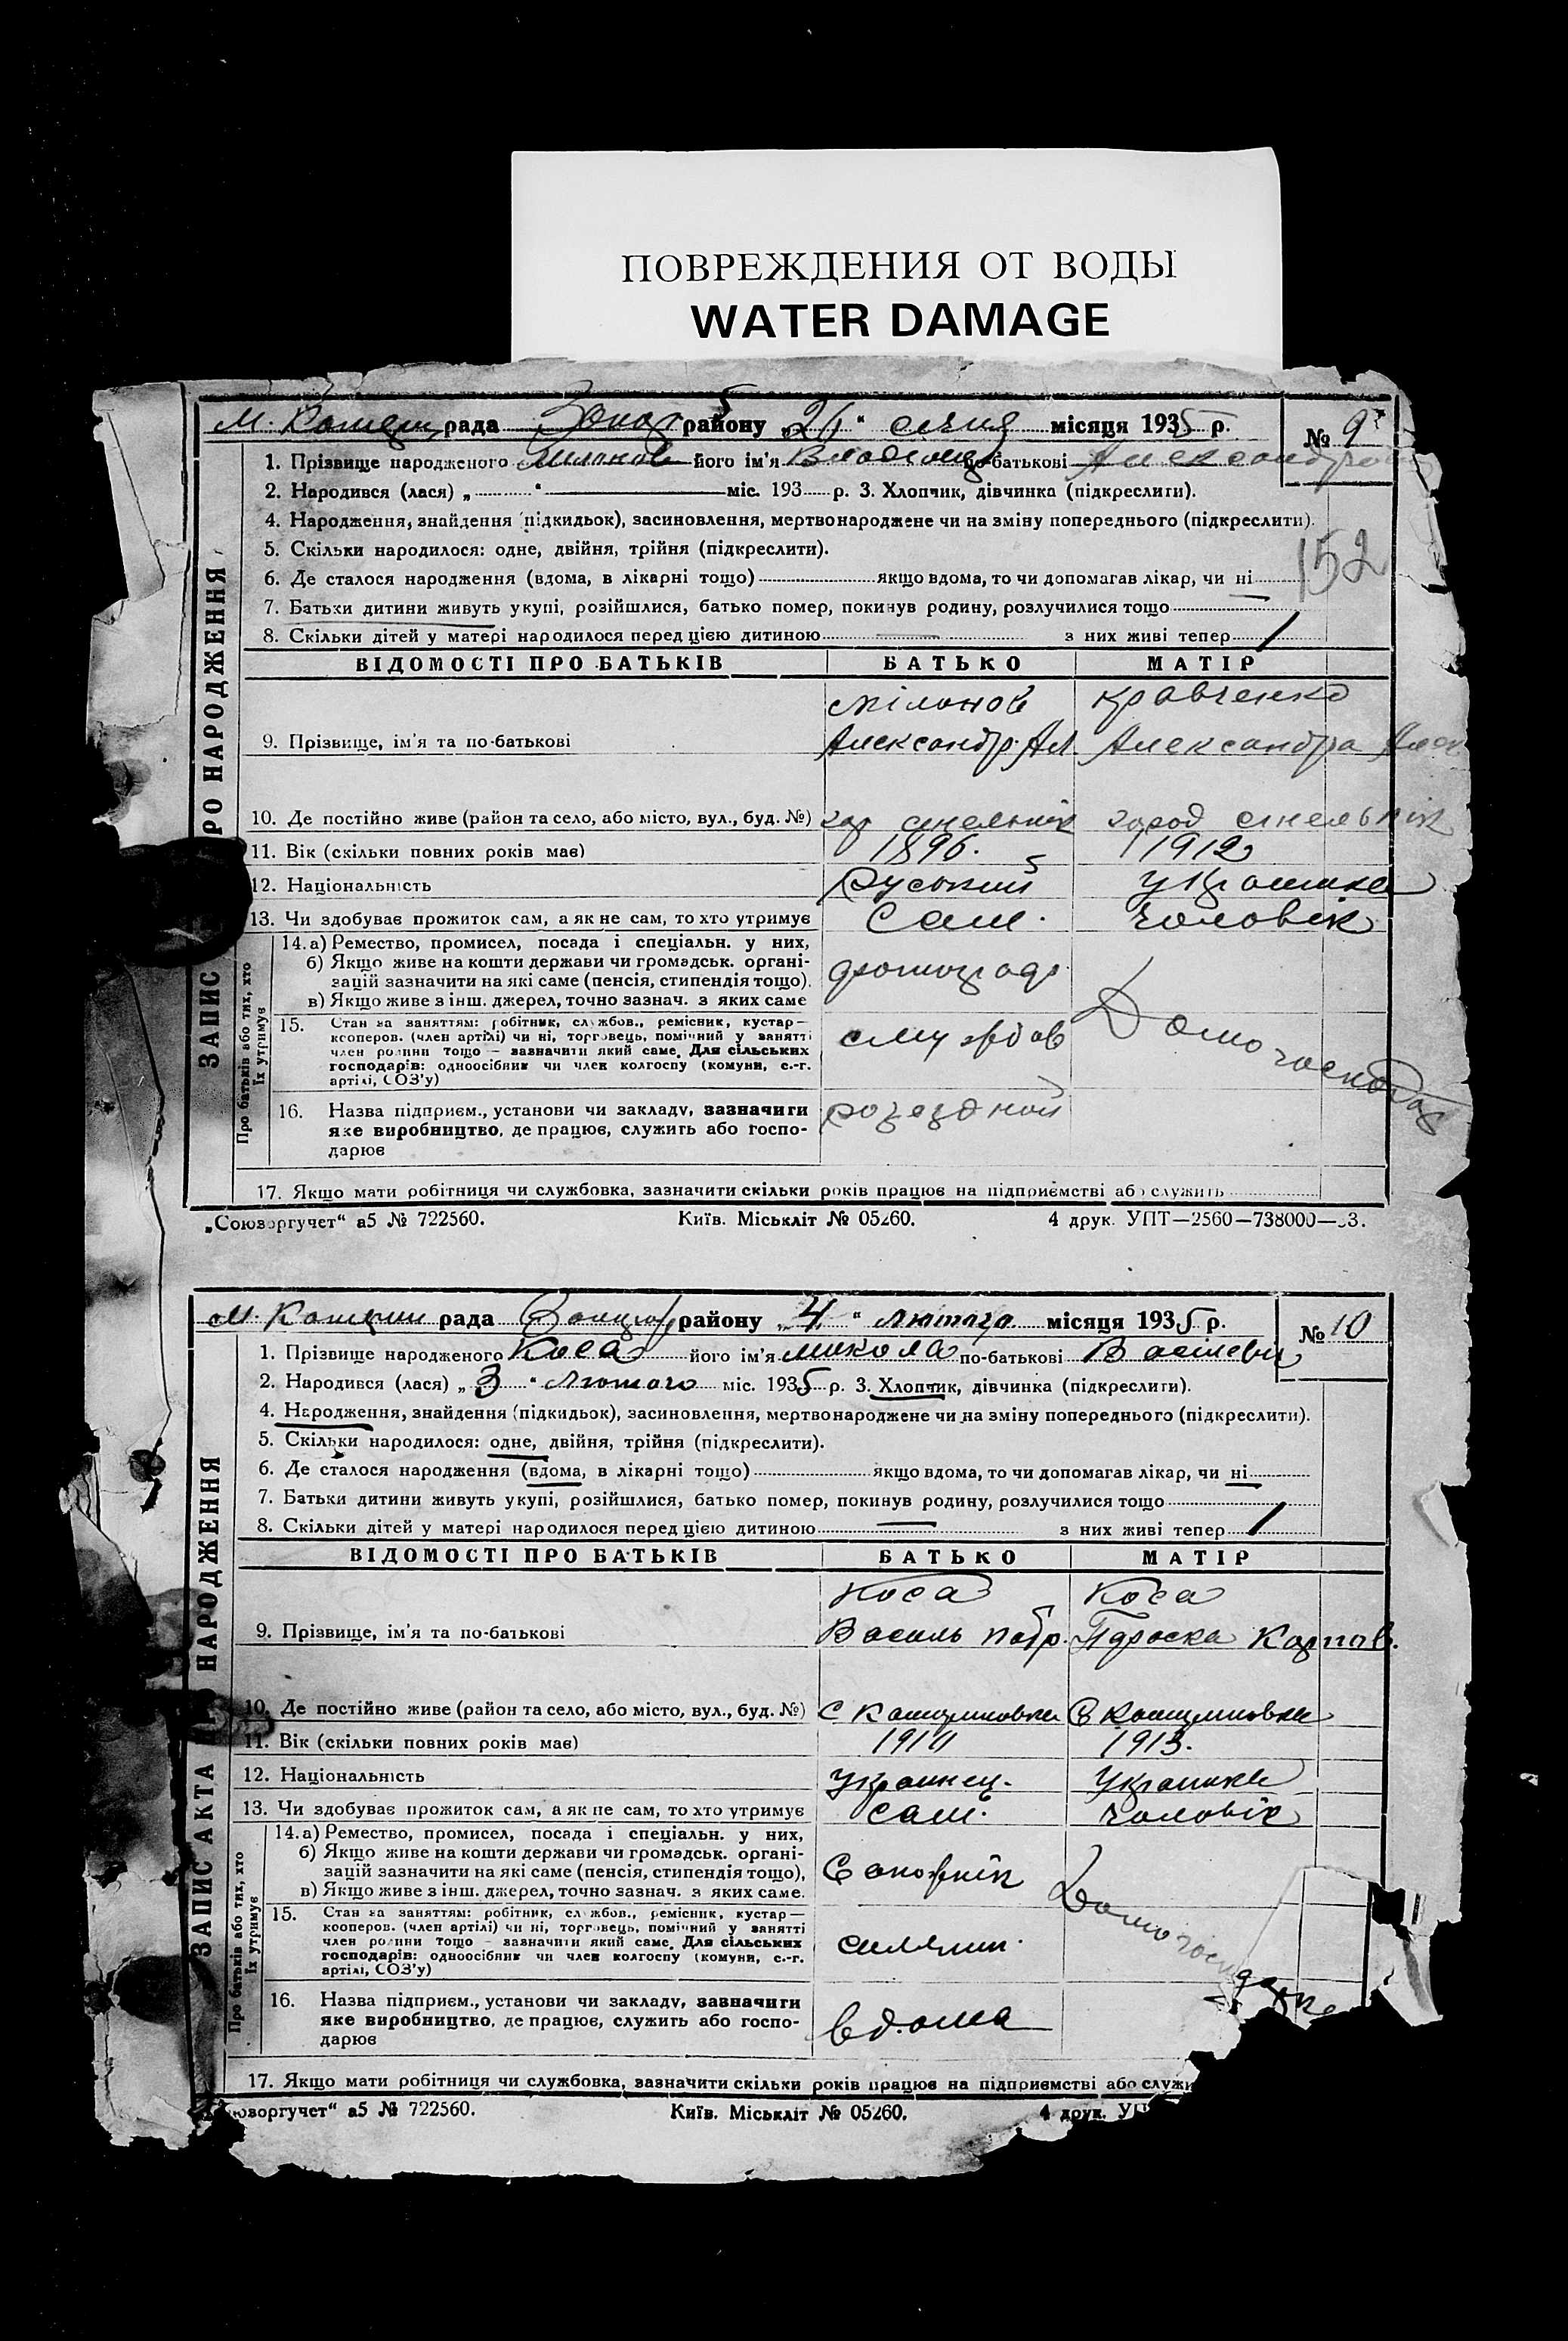 ПОВРЕЖДЕНИЯ ОТ ВОДЫ
WATER DAMAGE
рада району „26“ січня місяця 1935 р. № 9
1. Прізвище народженого Милонов його ім'я Владимир по-батькові Александрович
2. Народився (лася) „ “ міс. 193 р. 3. Хлопчик, дівчинка (підкреслити).
4. Народження, знайдення (підкидьок), засиновлення, мертвонароджене чи на зміну попереднього (підкреслити).
5. Скільки народилося: одне, двійня, трійня (підкреслити).
152
6. Де сталося народження (вдома, в лікарні тощо) якщо вдома, то чи допомагав лікар, чи ні
7. Батьки дитини живуть укупі, розійшлися, батько помер, покинув родину, розлучилися тощо
8. Скільки дітей у матері народилося перед цією дитиною — з них живі тепер /
ЗАПИС РО НАРОДЖЕННЯ
ВІДОМОСТІ ПРО БАТЬКІВ БАТЬКО МАТІР
Мілонов Кравченко
9. Прізвище, ім'я та по-батькові Александр Ал. Александра Алек
10. Де постійно живе (район та село, або місто, вул., буд. №) гор синельнік город синельнік
11. Вік (скільки повних років має) 1896. 1912
12. Національність руський Українка
13. Чи здобуває прожиток сам, а як не сам, то хто утримує Сам. Чоловік
Про батьків або тих, хто їх утримує
14. а) Ремество, промисел, посада і спеціальн. у них,
б) Якщо живе на кошти держави чи громадськ. органі-
зацій зазначити на які саме (пенсія, стипендія тощо), фотограф
в) Якщо живе з інш. джерел, точно зазнач. з яких саме
15. Стан за заняттям: робітник, службов., ремісник, кустар—
кооперов. (член артілі) чи ні, торговець, помічний у занятті
член родини тощо — зазначити який саме. Для сільських
господарів: одноосібник чи член колгоспу (комуни, с.-г.
артілі, СОЗ'у)
16. Назва підприєм., установи чи закладу, зазначити
яке виробництво, де працює, служить або госпо-
дарює
17. Якщо мати робітниця чи службовка, зазначити скільки років працює на підприємстві або служить
„Союзоргучет“ а5 № 722560. Київ. Міськліт № 05260. 4 друк. УПТ—2560—738000—33.
рада району „4“ лютого місяця 1935 р. № 10
1. Прізвище народженого Коса його ім'я Микола по-батькові
2. Народився (лася) „3“ Лютого міс. 1935 р. 3. Хлопчик, дівчинка (підкреслити).
4. Народження, знайдення (підкидьок), засиновлення, мертвонароджене чи на зміну попереднього (підкреслити).
5. Скільки народилося: одне, двійня, трійня (підкреслити).
6. Де сталося народження (вдома, в лікарні тощо) якщо вдома, то чи допомагав лікар, чи ні
7. Батьки дитини живуть укупі, розійшлися, батько помер, покинув родину, розлучилися тощо
8. Скільки дітей у матері народилося перед цією дитиною — з них живі тепер /
ЗАПИС АКТА НАРОДЖЕННЯ
ВІДОМОСТІ ПРО БАТЬКІВ БАТЬКО МАТІР
Коса Коса
9. Прізвище, ім'я та по-батькові Василь Карпов.
10. Де постійно живе (район та село, або місто, вул., буд. №)
11. Вік (скільки повних років має) 1913.
12. Національність Українец. Українка
13. Чи здобуває прожиток сам, а як не сам, то хто утримує сам. чоловік
Про батьків або тих, хто їх утримує
14. а) Ремество, промисел, посада і спеціальн. у них,
б) Якщо живе на кошти держави чи громадськ. органі-
зацій зазначити на які саме (пенсія, стипендія тощо),
в) Якщо живе з інш. джерел, точно зазнач. з яких саме.
15. Стан за заняттям: робітник, службов., ремісник, кустар—
кооперов. (член артілі) чи ні, торговець, помічний у занятті
член родини тощо — зазначити який саме. Для сільських
господарів: одноосібник чи член колгоспу (комуни, с.-г.
артілі, СОЗ'у)
16. Назва підприєм., установи чи закладу, зазначити
яке виробництво, де працює, служить або госпо- вдома
дарює
17. Якщо мати робітниця чи службовка, зазначити скільки років працює на підприємстві або служи
юзоргучет“ а5 № 722560. Київ. Міськліт № 05260. 4 друк. УП